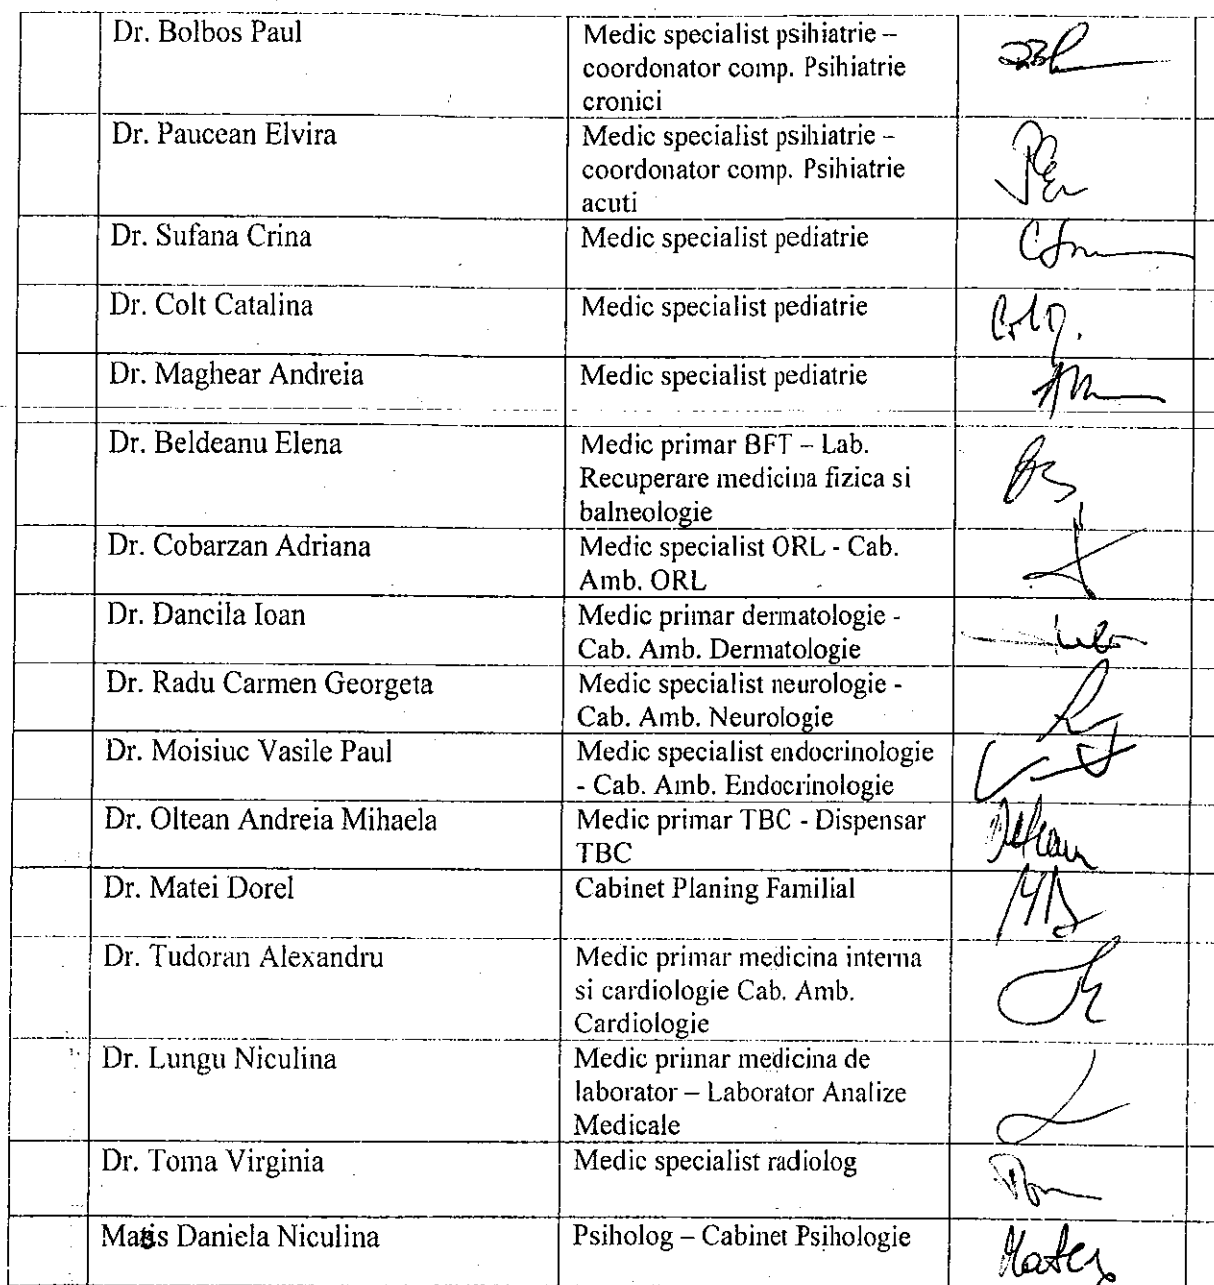 Dr. Bolbos Paul
Medic specialist psihiatrie –
coordonator comp. Psihiatrie
cronici
Dr. Paucean Elvira
Medic specialist psihiatrie –
coordonator comp. Psihiatrie
acuti
Dr. Sufana Crina
Medic specialist pediatrie
Dr. Colt Catalina
Medic specialist pediatrie
Dr. Maghear Andreia
Medic specialist pediatrie
Dr. Beldeanu Elena
Medic primar BFT – Lab.
Recuperare medicina fizica si
balneologie
Dr. Cobarzan Adriana
Medic specialist ORL - Cab.
Amb. ORL
Dr. Dancila Ioan
Medic primar dermatologie -
Cab. Amb. Dermatologie
Dr. Radu Carmen Georgeta
Medic specialist neurologie -
Cab. Amb. Neurologie
Dr. Moisiuc Vasile Paul
Medic specialist endocrinologie
- Cab. Amb. Endocrinologie
Dr. Oltean Andreia Mihaela
Medic primar TBC - Dispensar
TBC
Dr. Matei Dorel
Cabinet Planing Familial
Dr. Tudoran Alexandru
Medic primar medicina interna
si cardiologie Cab. Amb.
Cardiologie
Dr. Lungu Niculina
Medic primar medicina de
laborator – Laborator Analize
Medicale
Dr. Toma Virginia
Medic specialist radiolog
Daniela Niculina
Psiholog – Cabinet Psihologie